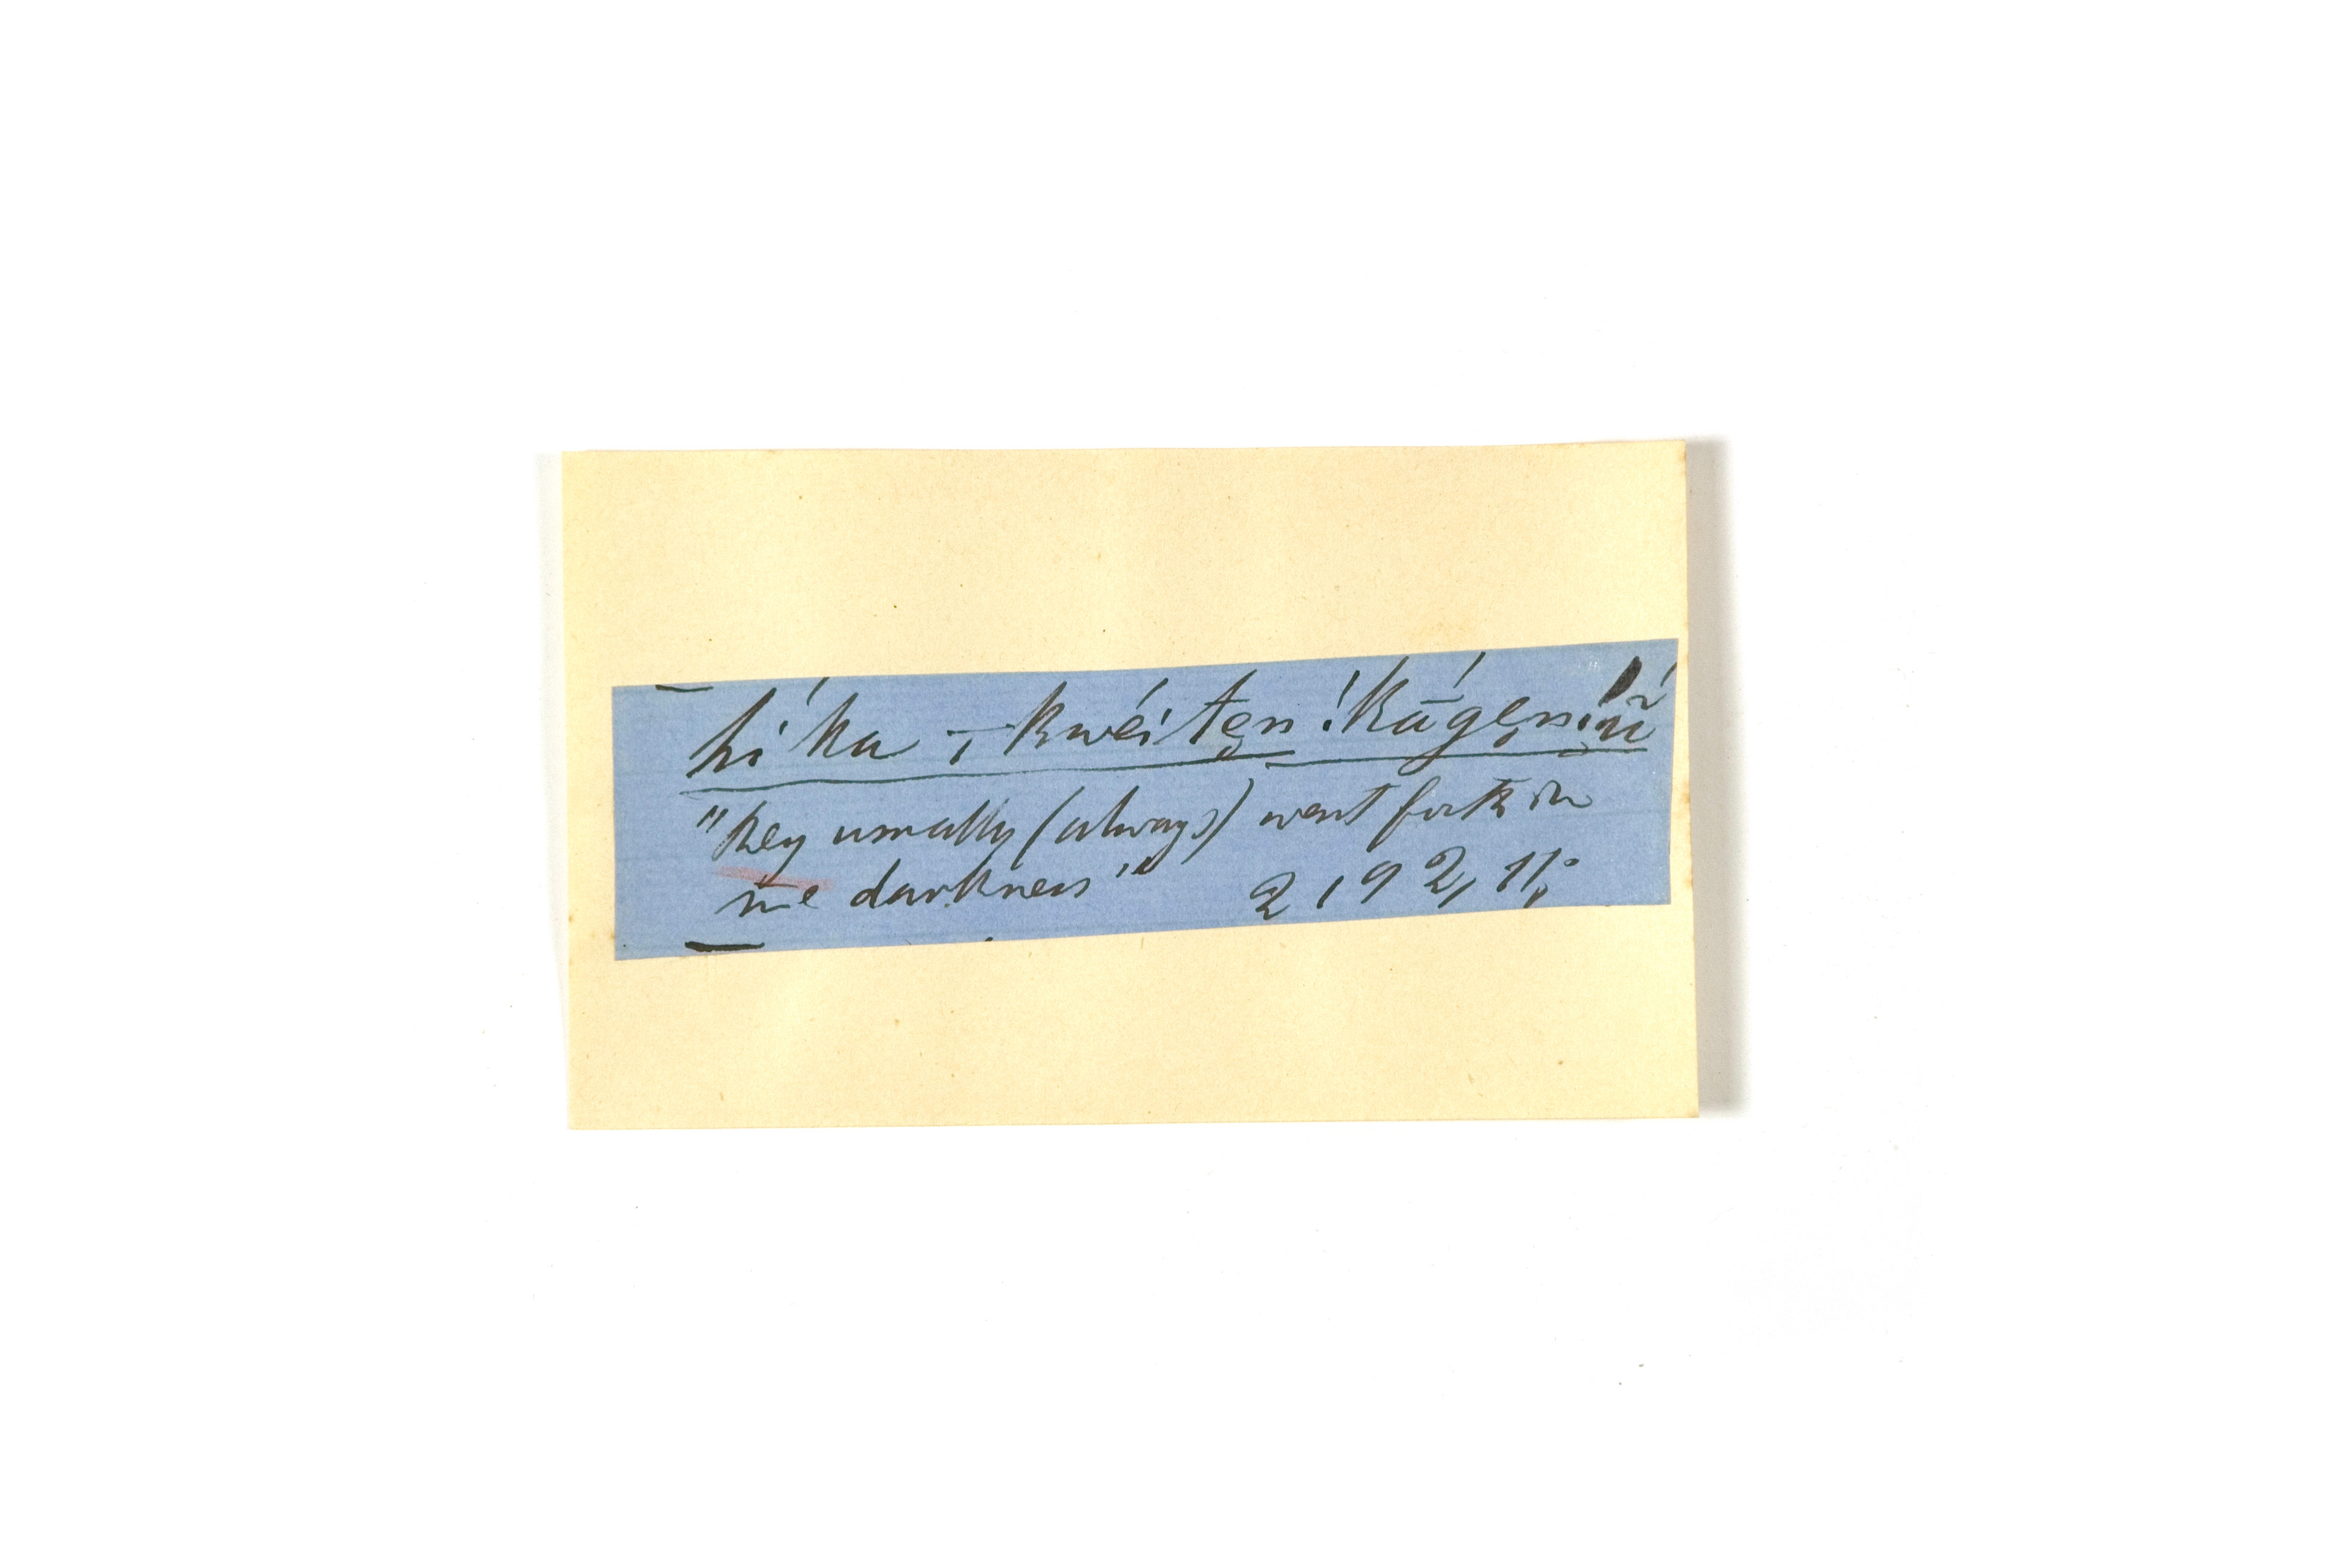 hí ka ͵– kwéi ten !kā́gen
"they usually (always) went forth in
the darkness" 2,192,11;